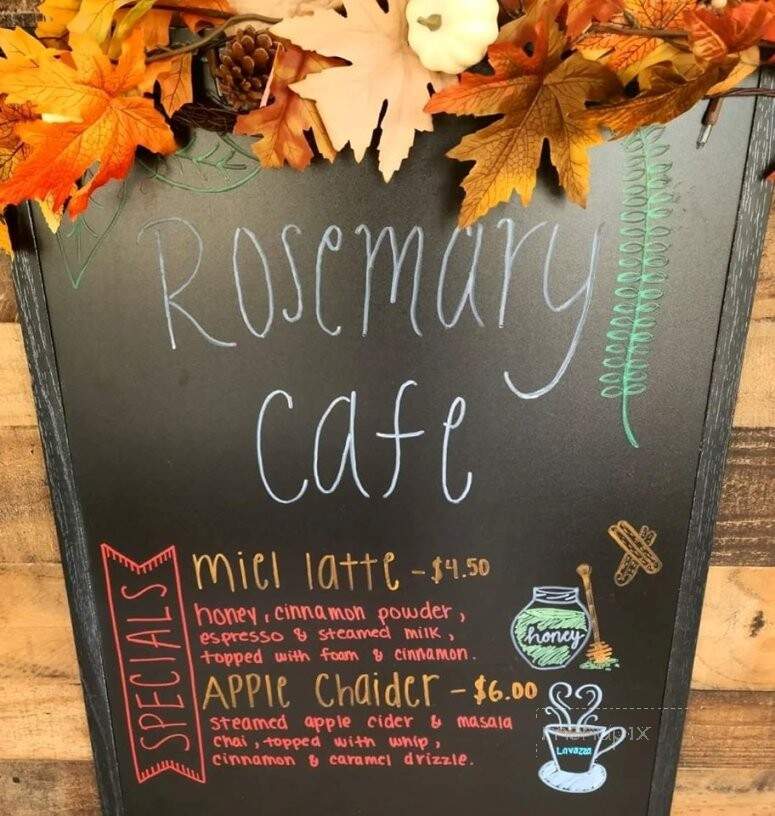 Rosemary
Cafe
SPECIALS
miel latte - $4.50
honey, cinnamon powder,
espresso & steamed milk,
topped with foam & cinnamon.
honey
APPLE Chaider - $6.00
steamed apple cider & masala
chai, topped with whip,
cinnamon & caramel drizzle.
Lavazza